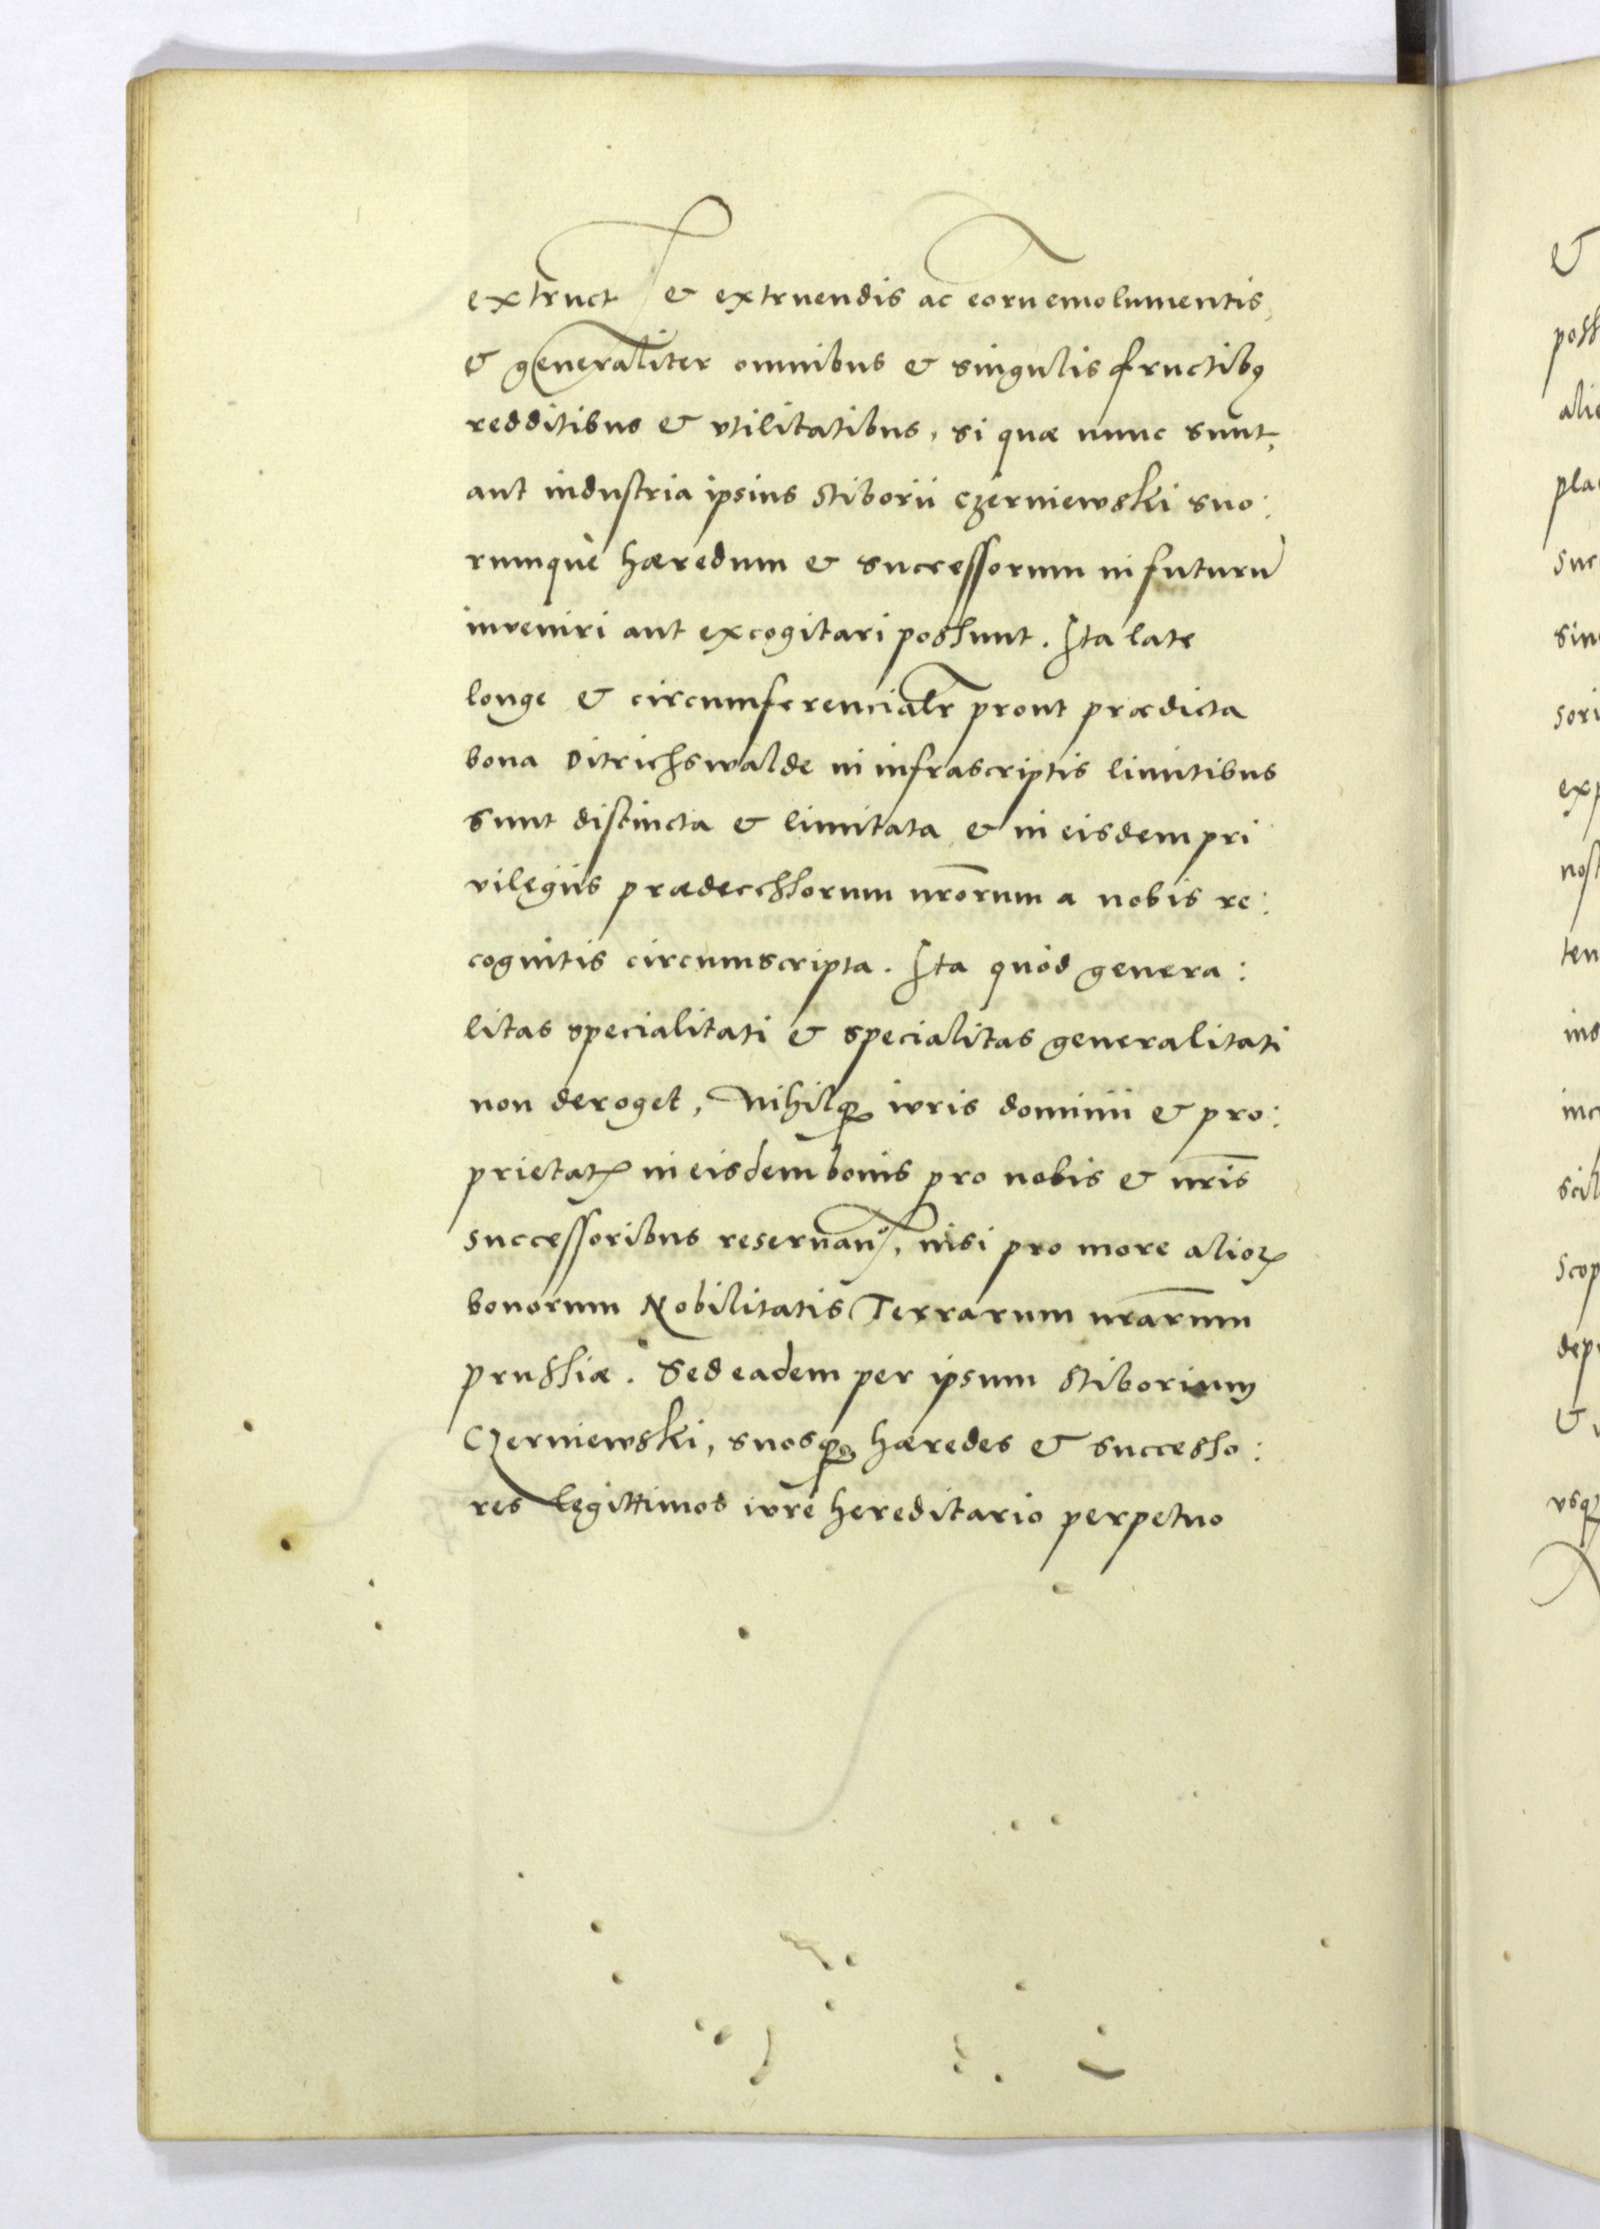 extruct & extruendis ac eorū emolumentis,
& generaliter omnibus & singulis fructibꝰ
redditibus & vtilitatibus, si quæ nunc sunt,
aut industria ipsius Stiborii Czerniewski suo:
rumquè hæredum & successorum in futurū
inveniri aut excogitari possunt. Ita late
longe & circumferencialr̄ prout prædicta
bona Ditrichswalde in infrascriptis limitibus
sunt distincta & limitata & in eisdem pri
vilegiis prædecessorum nr̄orum a nobis re:
cognitis circumscripta. Ita quòd genera:
litas specialitati & specialitas generalitati
non deroget, Nihilqꝫ iuris dominii & pro:
prietatꝭ in eisdem bonis pro nobis & nr̄is
successoribus reseruan̄, nisi pro more alioꝝ
bonorum Nobilitatis Terrarum nr̄arum
Prussiæ. Sed eadem per ipsum Stiborium
Czerniewski, suosqꝫ hæredes & successo:
res legittimos iure hereditario perpetuo
&
poss
alie
pla
suc
sin
sori
exp
nost
ten
ins
inc
scil
scop
dep
&
vsqꝫ